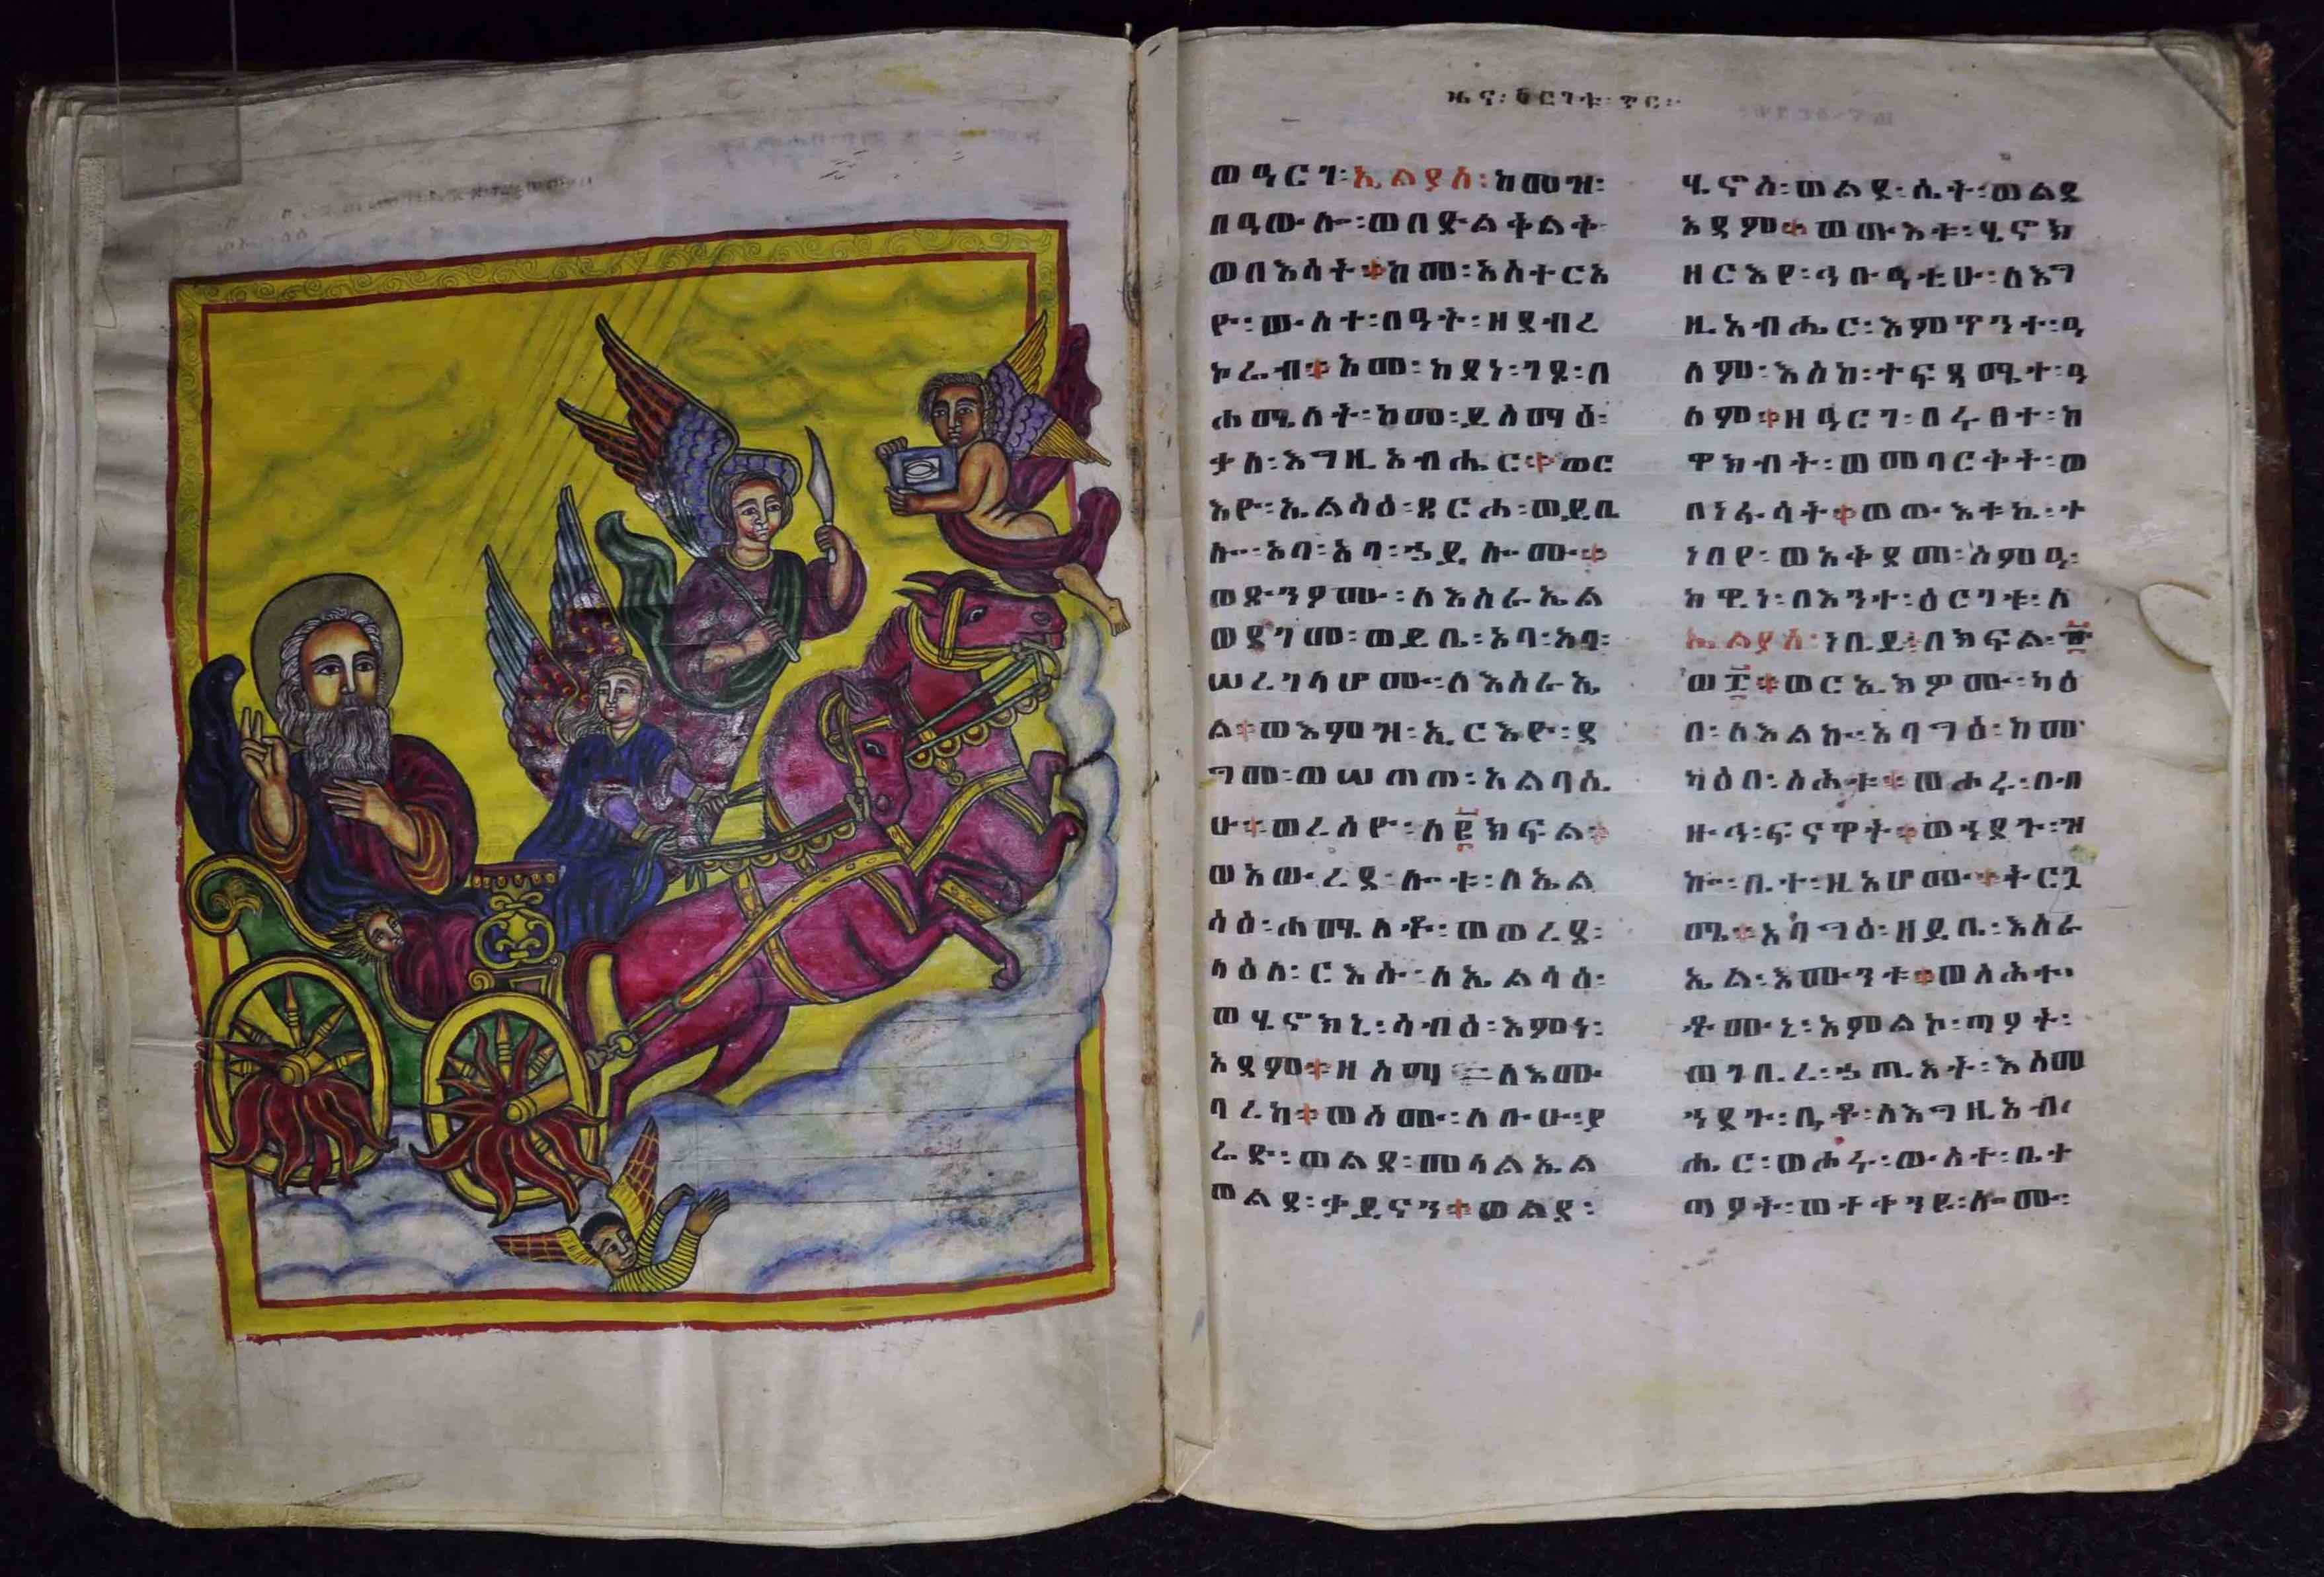 ዜና፡ ዕርገቱ፡ ጥር፡
ወዓርገ፡ ኢልያስ፡ ከመዝ፡
በዓውሎ፡ ወበድልቅልቅ
ወበእሳት። ከመ፡ አስተርአ
ዮ፡ ውስተ፡ በዓት፡ ዘደብረ
ኮሬብ። አመ፡ ከደነ፡ ገጹ፡ በ
ሐሜለት፡ ከመ፡ ይስማዕ፡
ቃለ፡ እግዚአብሔር። ወር
እዮ፡ ኤልሳዕ፡ ጸርሐ፡ ወይቤ
ሎ፡ አባ፡ አባ፡ ኃይሎሙ።
ወጽንዖሙ፡ ለእስራኤል
ወደገመ፡ ወይቤ፡ አባ፡ አባ፡
ሠረገላሆሙ፡ ለእስራኤ
ል። ወእምዝ፡ ኢርእዮ፡ ዳ
ግመ፡ ወሠጠጠ፡ አልባሲ
ሁ። ወረሰዮ፡ ለ፪ክፍል።
ወአውረደ፡ ሎቱ፡ ለኤል
ሳዕ፡ ሐሜለቶ፡ ወወረደ፡
ላዕለ፡ ርእሱ፡ ለኤልሳዕ፡
ወሄኖክኒ፡ ሳብዕ፡ እምነ፡
አዳም። ዘለእሙ
ባረከ። ወስሙ፡ ለአቡሁ፡ ያ
ሬድ፡ ወልደ፡ መላልኤል
ወልደ፡ ቃይናን። ወልደ፡
ሄኖስ፡ ወልደ፡ ሴት፡ ወልደ
አዳም። ወውእቱ፡ ሄኖክ
ዘርእየ፡ ኅቡዓቲሁ፡ ለእግ
ዚአብሔር፡ እምጥንተ፡ ዓ
ለም፡ እስከ፡ ተፍጻሜተ፡ ዓ
ለም። ዘዓርገ፡ በሩፀተ፡ ከ
ዋክብት፡ ወመባርቅት፡ ወ
በነፋሳት። ወውእቱኒ፡ ተ
ነበየ፡ ወአቅደመ፡ ለምዒ፡
ክዋኔ፡ በእንተ፡ ዕርገቱ፡ ለ
ኤልያስ፡ ነቢይ፡ በክፍል፡
ወ፫። ወርኢክዎሙ፡ ካዕ
በ፡ ለእልኩ፡ አባግዕ፡ ከመ
ካዕበ፡ ስሕቱ። ወሖሩ፡ በብ
ዙኅ፡ ፍናዋት። ወኀደጉ፡ ዝ
ኩ፡ ቤተ፡ ዚአሆሙ። ትርጓ
ሜ። አባግዕ፡ ዘይቤ፡ እስራ
ኤል፡ እሙንቱ። ወለሕተ
ቶሙኒ፡ አምልኮ፡ ጣዖት፡
ወገቢረ፡ ኃጢአት፡ እስመ
ኀደጉ፡ ቤቶ፡ ለእግዚአብ
ሔር፡ ወሖሩ፡ ውስተ፡ ቤተ
ጣዖት፡ ወተቀንዩ፡ ሎሙ፡